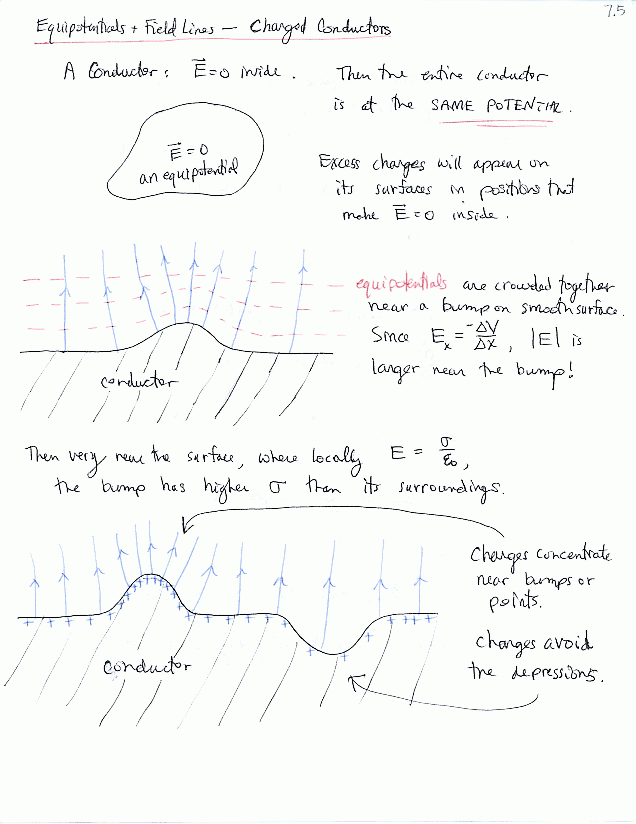 7.5
Equipotentials + Field Lines — Charged Conductors
A Conductor: E⃗=0 inside.
Then the entire conductor
is at the SAME POTENTIAL.
E⃗=0
an equipotential
Excess charges will appear on
its surfaces in positions that
make E⃗=0 inside.
equipotentials are crowded together
near a bump on smooth surface.
Since Eₓ = -ΔV/ΔX, |E| is
larger near the bump!
conductor
Then very near the surface, where locally E = σ/ε₀,
the bump has higher σ than its surroundings.
Charges concentrate
near bumps or
points.
Charges avoid
the depressions.
conductor